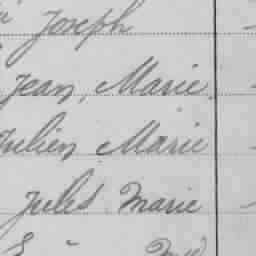 Joseph
Jean, Marie
Julien Marie
Jules Marie